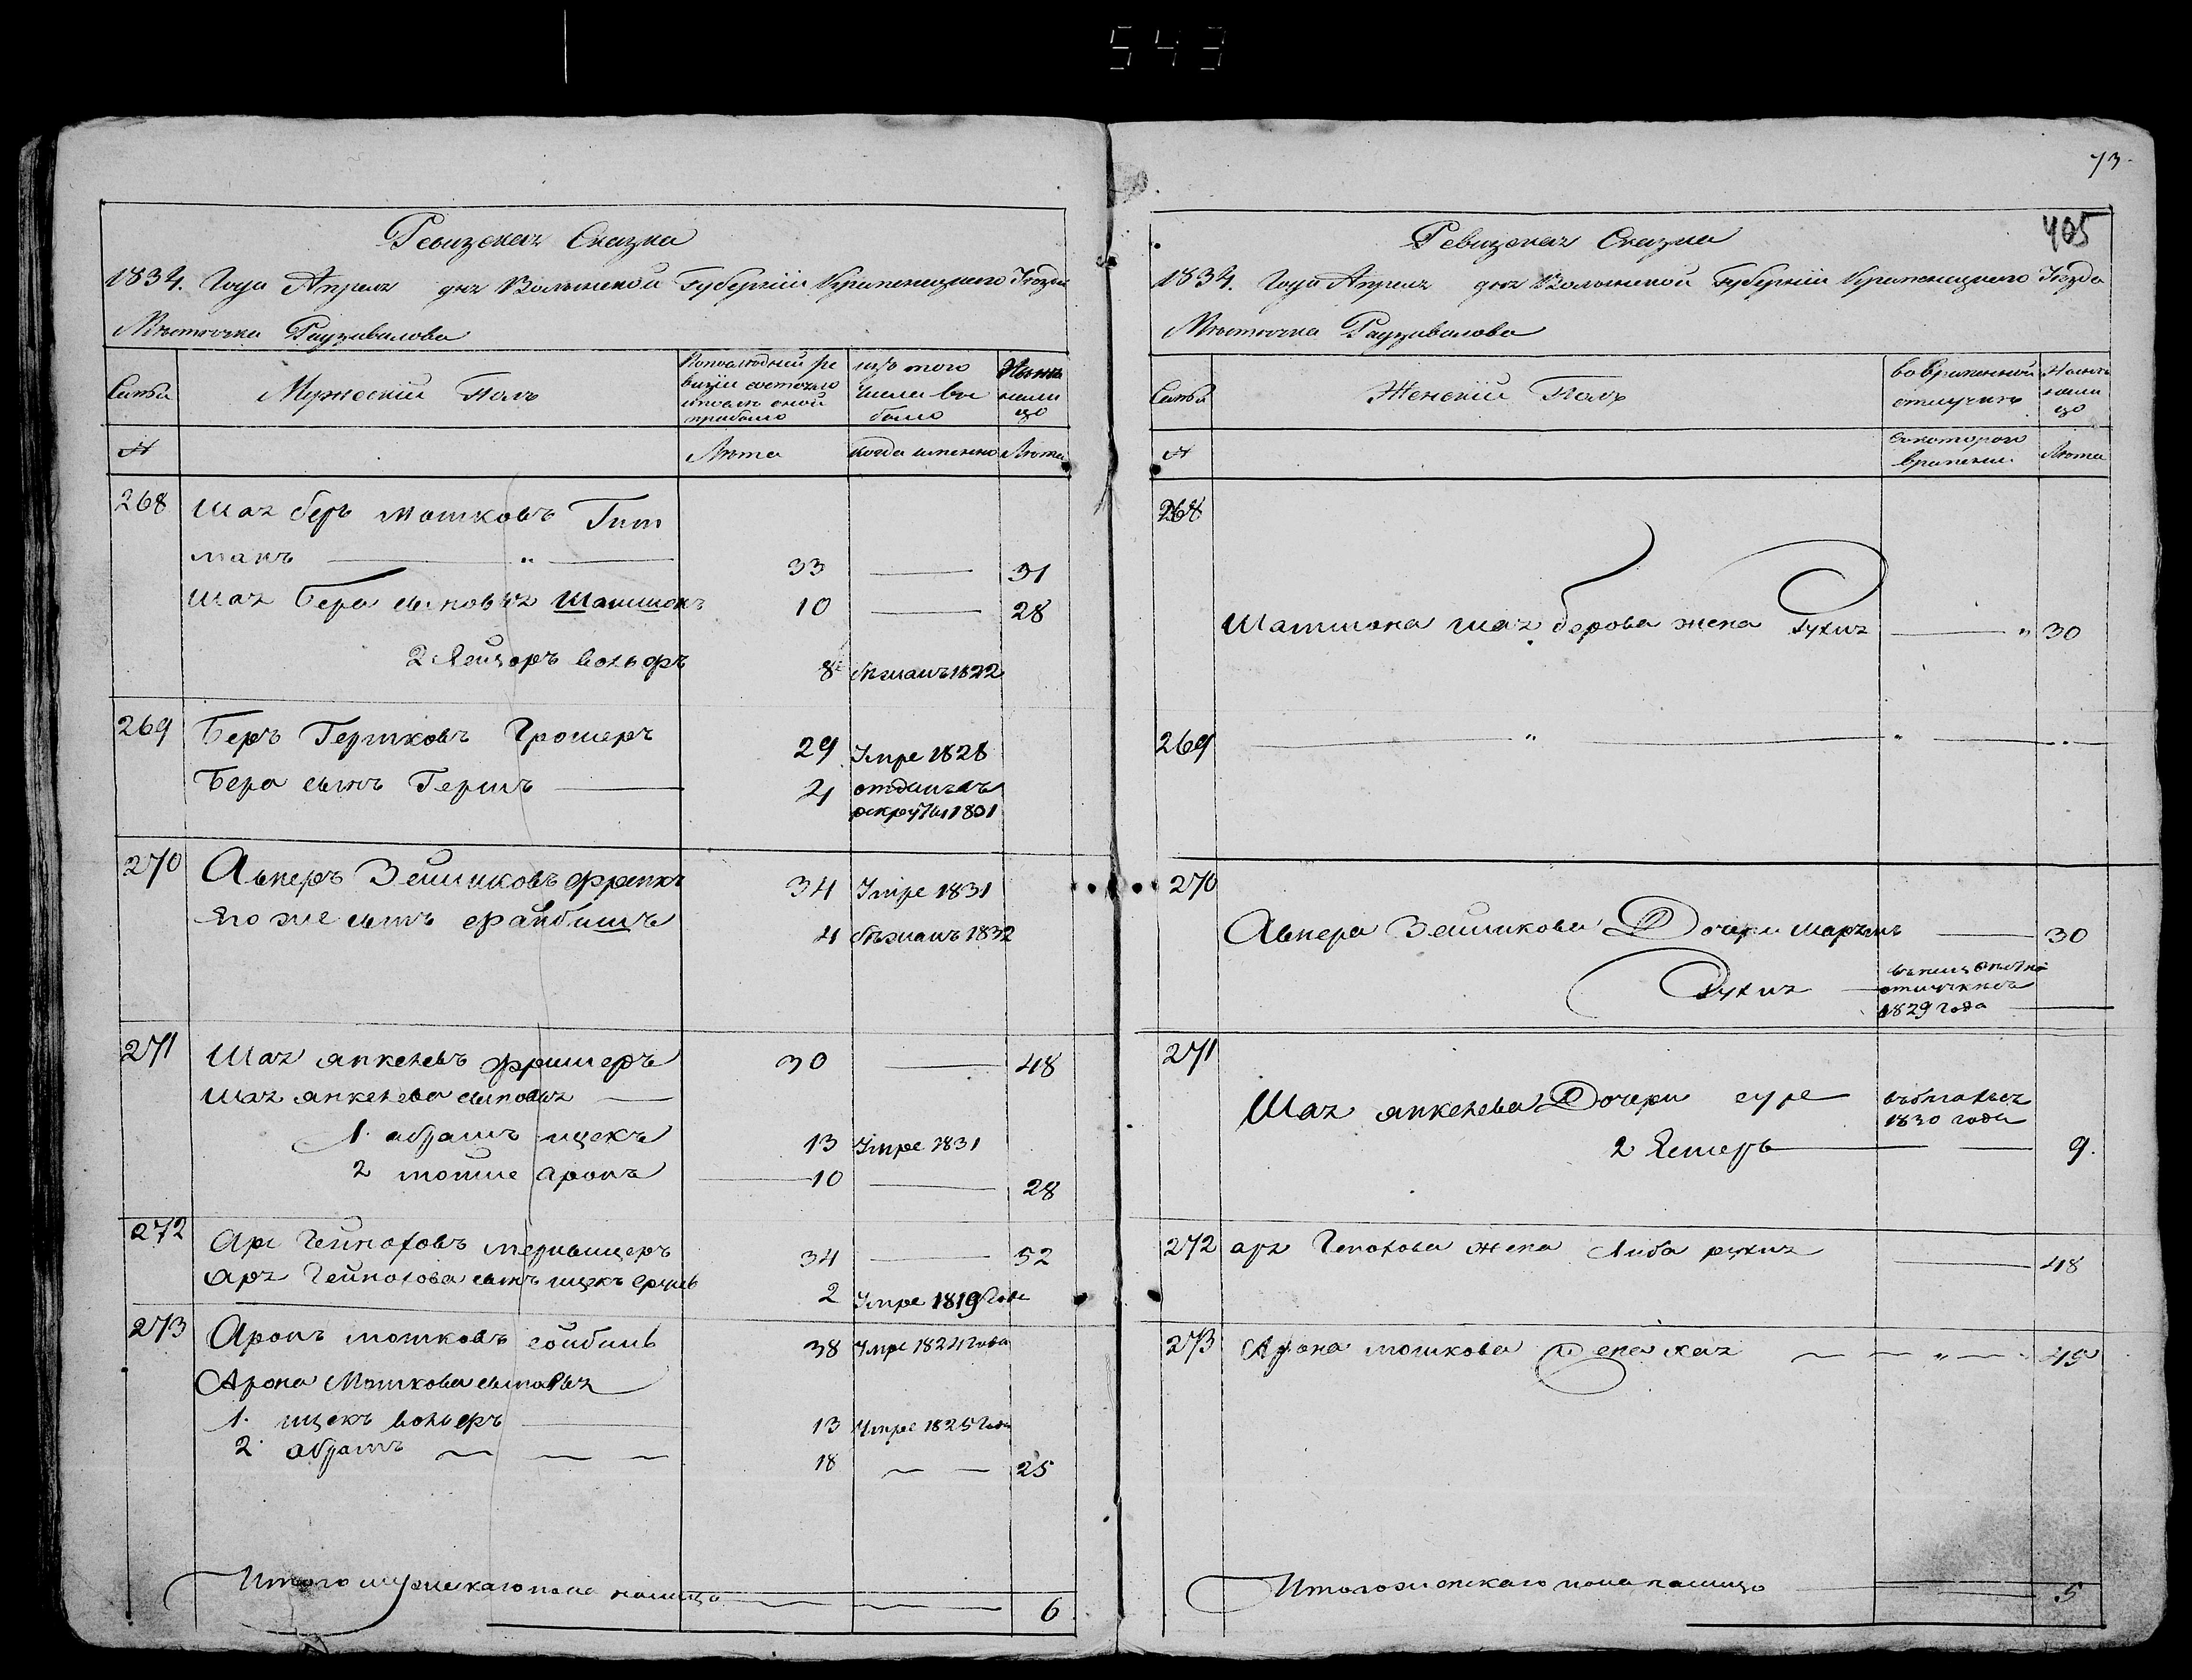 543
73.
405
Ревизская Сказка
1834. Года Апреля дня Волынской Губернии Кременецкого Уезда
Местечка Радзивилова
Семьи
Мужеский Полъ
По последней ре
визии состояло
и после оной
прибыло
изъ того
числа вы
было
Ныне
нали
цо
№
Лета
когда именно
Лета
268 Шая беръ мошковъ Гит
манъ 33 31
Шая Бера сыновья Шамшонъ 10 28
2 Лейзоръ вольфъ 8 бежалъ 1822
269 Беръ Гершковъ 29 Умре 1828
Бера сынъ Гершъ 4 отданъ въ
рекруты 1831
270 34 Умре 1831
его же сынъ 4 бежалъ 1832
271 Шая янкелевъ фришеръ 30 48
Шая янкелева сыновья
1. абрамъ ицекъ 13 Умре 1831
2 аронъ 10 28
272 34 52
сынъ ицекъ 2 Умре 1819 Года
273 Аронъ мошковъ 38 Умре 1824 года
Арона Мошкова сыновья
1. ицекъ вольфъ 13 Умре 1825 Года
2. абрамъ 18 25
Итого мужескаго пола налицо 6
Ревизская Сказка
1834. Года Апреля дня Волынской Губернии Кременецкого Уезда
Местечка Радзивилова
Семьи
Женский Полъ
во временной
отлучке
Ныне
нали
цо
№
с которого
времени
Лета
268
Шамшона шая берова жена Рухля 30
269
270
Дочери 30
Рухля
отлучке съ
1829 года
271
Шая янкелева Дочери суре
1830 года
2 Естеръ 9.
272 жена Либа рухля 48
273 Арона мошкова жена хая 45
Итого женскаго пола налицо 5